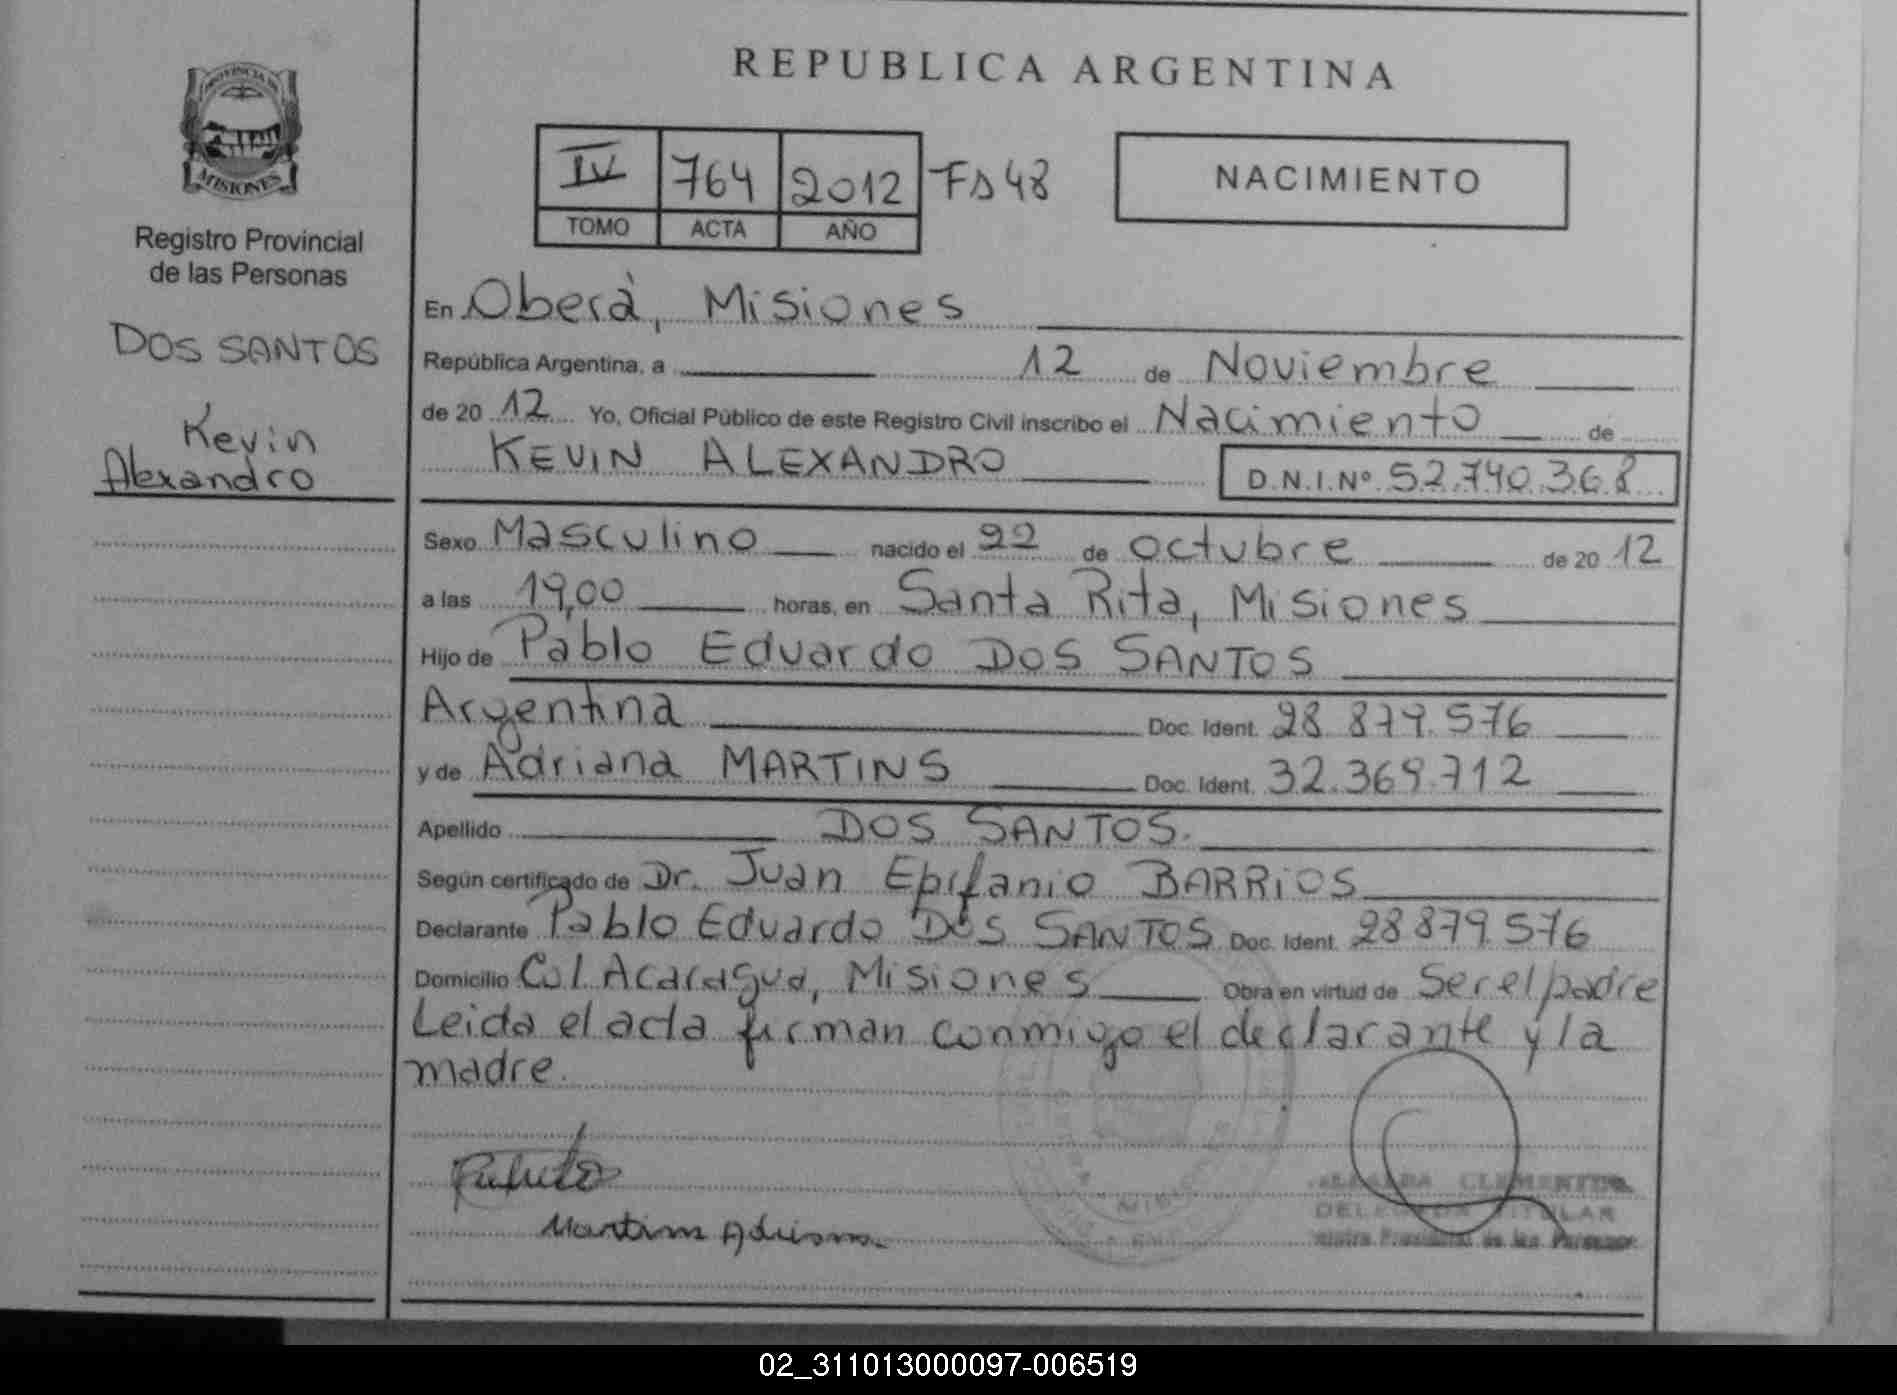 PROVINCIA DE
MISIONES
Registro Provincial
de las Personas
DOS SANTOS
Kevin
Alexandro
REPUBLICA ARGENTINA
IV 764 2012 Fo 48
TOMO ACTA AÑO
NACIMIENTO
En Oberà, Misiones
República Argentina, a 12 de Noviembre
de 20 12 Yo, Oficial Público de este Registro Civil inscribo el Nacimiento de
KEVIN ALEXANDRO D.N.I.Nº 52.740.368
Sexo Masculino nacido el 22 de octubre de 20 12
a las 19,00 horas, en Santa Rita, Misiones
Hijo de Pablo Eduardo DOS SANTOS
Argentina Doc. Ident. 28.879.576
y de Adriana MARTINS Doc. Ident. 32.369.712
Apellido DOS SANTOS.
Según certificado de Dr. Juan Epifanio BARRIOS
Declarante Pablo Eduardo DOS SANTOS Doc. Ident. 28879.576
Domicilio Col. Acaragua, Misiones Obra en virtud de Ser el padre
Leida el acta firman conmigo el declarante y la
madre.
Martins Adriana
DELEGADA TITULAR
02_311013000097-006519